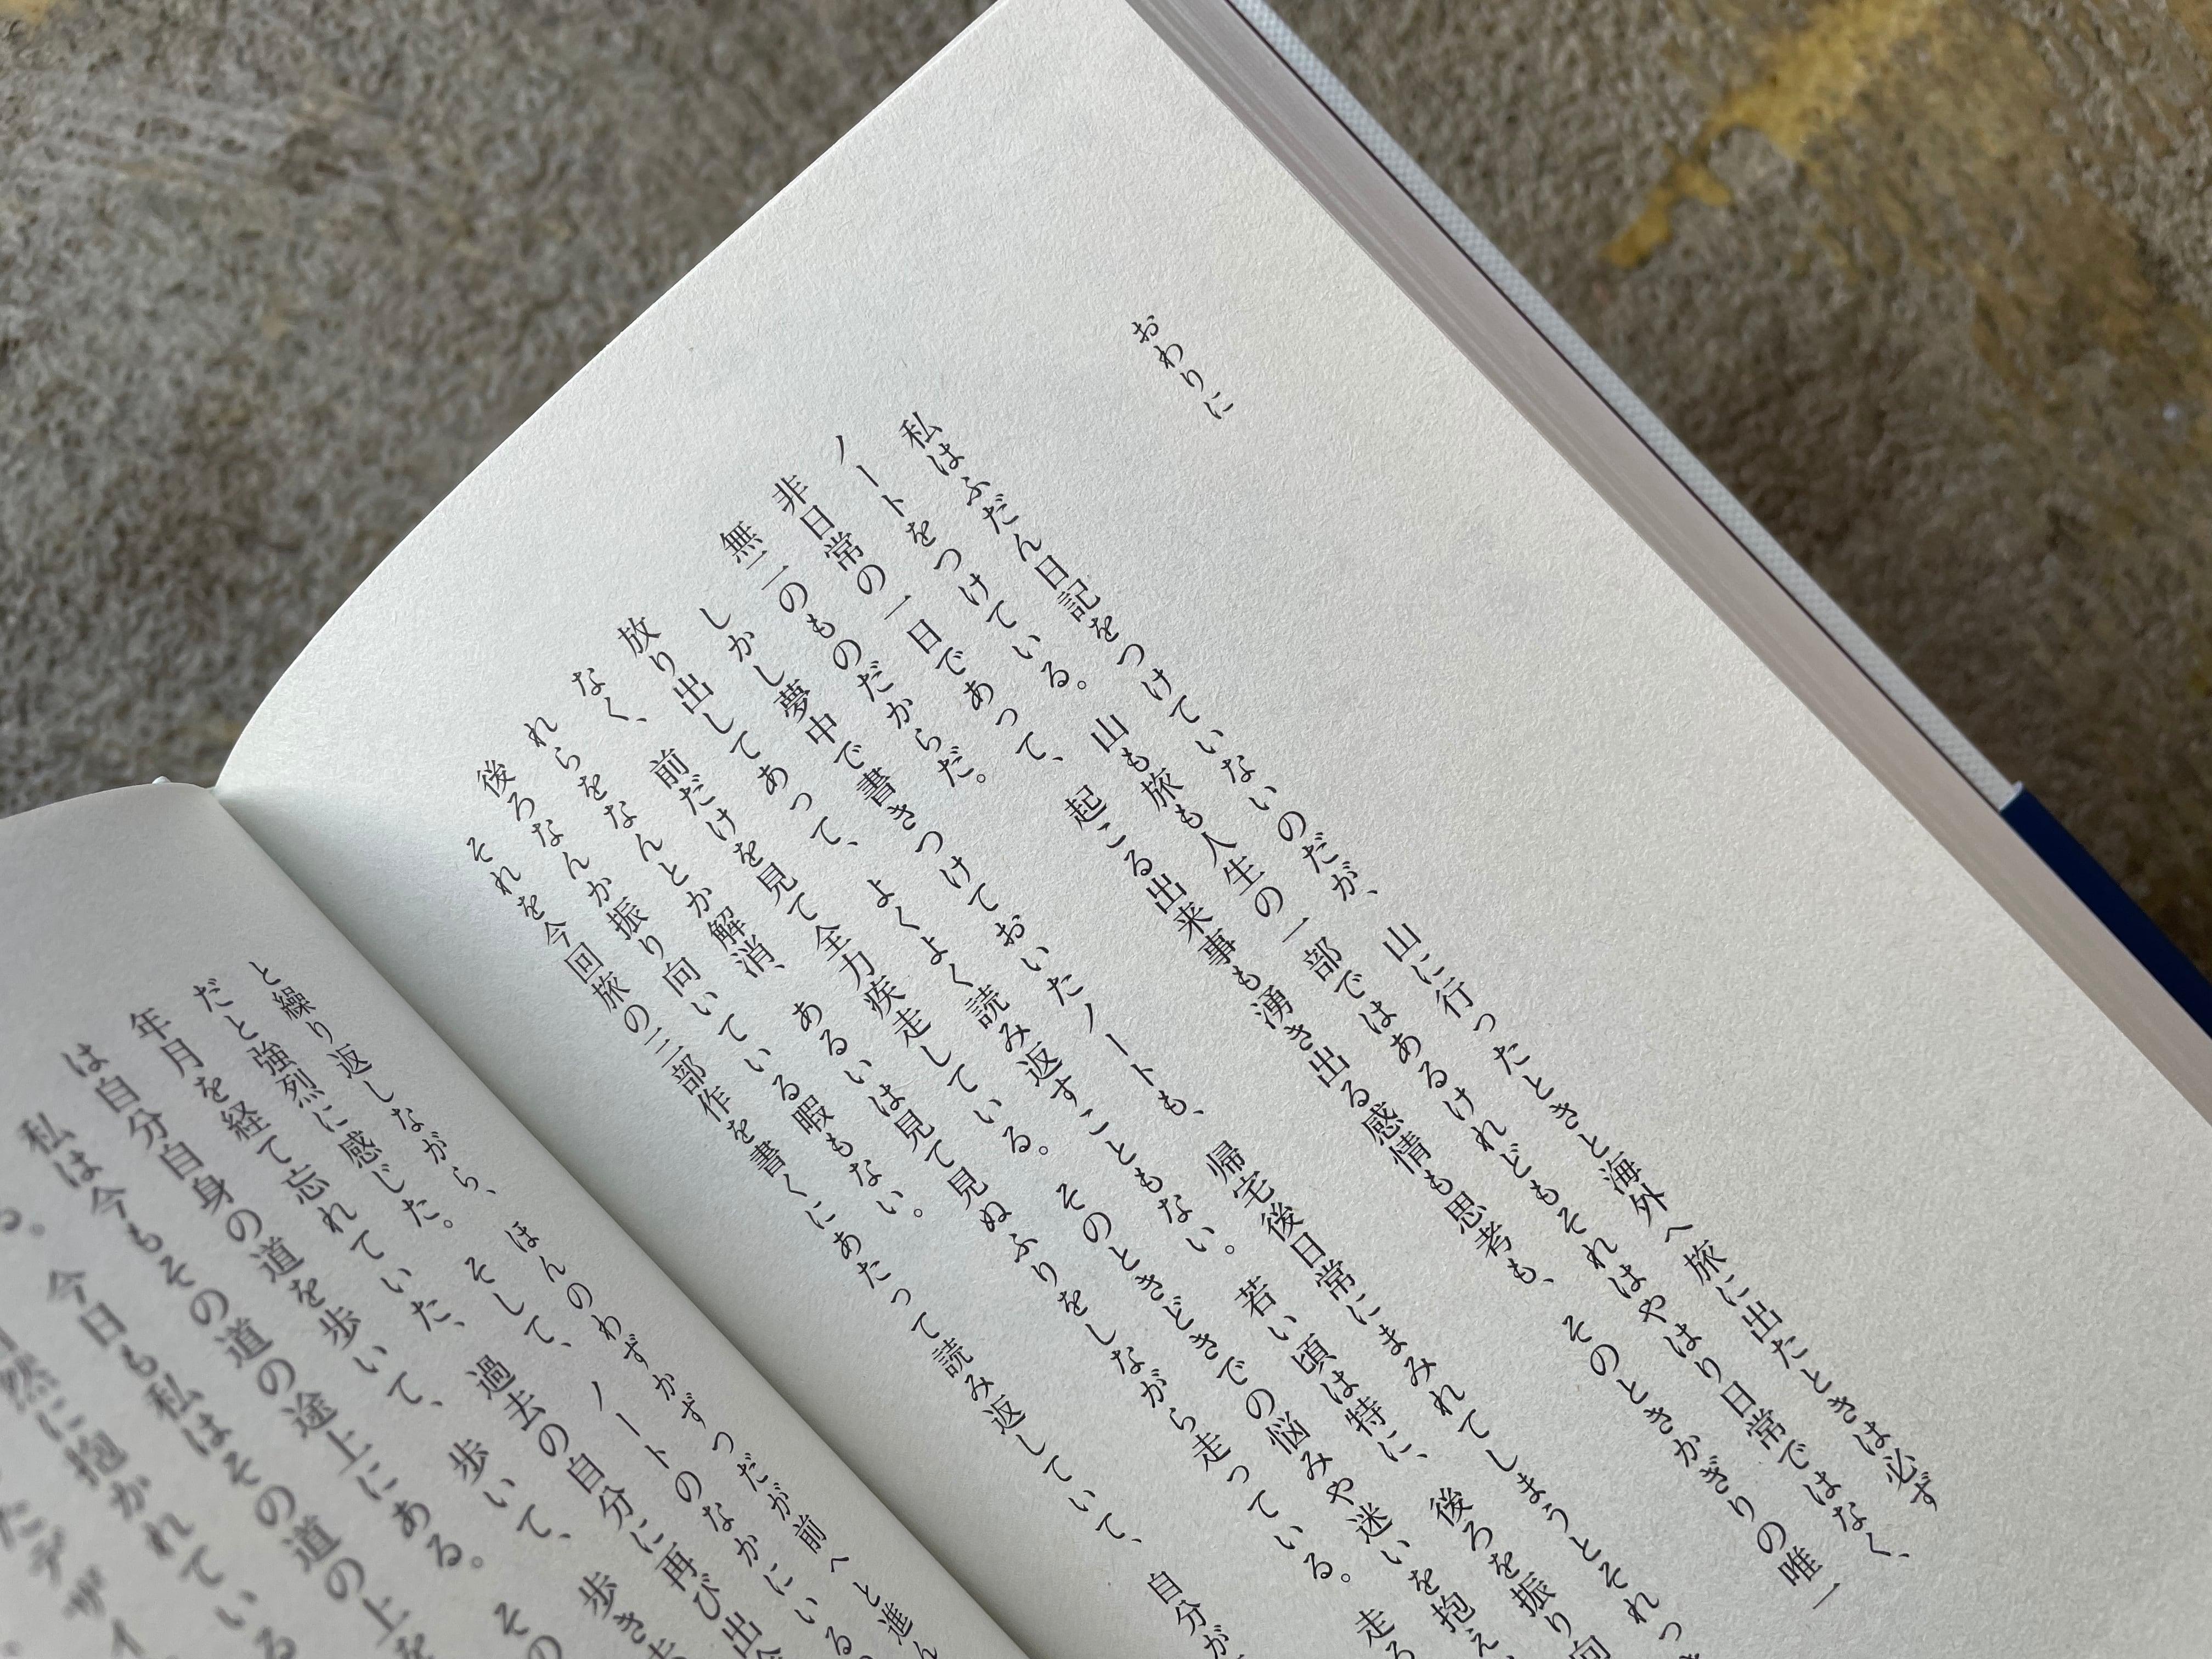 おわりに
私はふだん日記をつけていないのだが、山に行ったときと海外へ旅に出たときは必ず
ノートをつけている。山も旅も人生の一部ではあるけれどもそれはやはり日常ではなく、
非日常の一日であって、起こる出来事も湧き出る感情も思考も、そのときかぎりの唯一
無二のものだからだ。
しかし夢中で書きつけておいたノートも、帰宅後日常にまみれてしまうとそれっき
放り出してあって、よくよく読み返すこともない。若い頃は特に、後ろを振り向
なく、前だけを見て全力疾走している。そのときどきでの悩みや迷いを抱え、
れらをなんとか解消、あるいは見て見ぬふりをしながら走っている。走ろ
後ろなんか振り向いている暇もない。
それを今回旅の三部作を書くにあたって読み返していて、自分が
と繰り返しながら、ほんのわずかずつだが前へと進ん
だと強烈に感じた。そして、ノートのなかにいる
年月を経て忘れていた、過去の自分に再び出会
は自分自身の道を歩いて、歩いて、歩き
私は今もその道の途上にある。その
る。今日も私はその道の上を
然に抱かれている
たデザイ